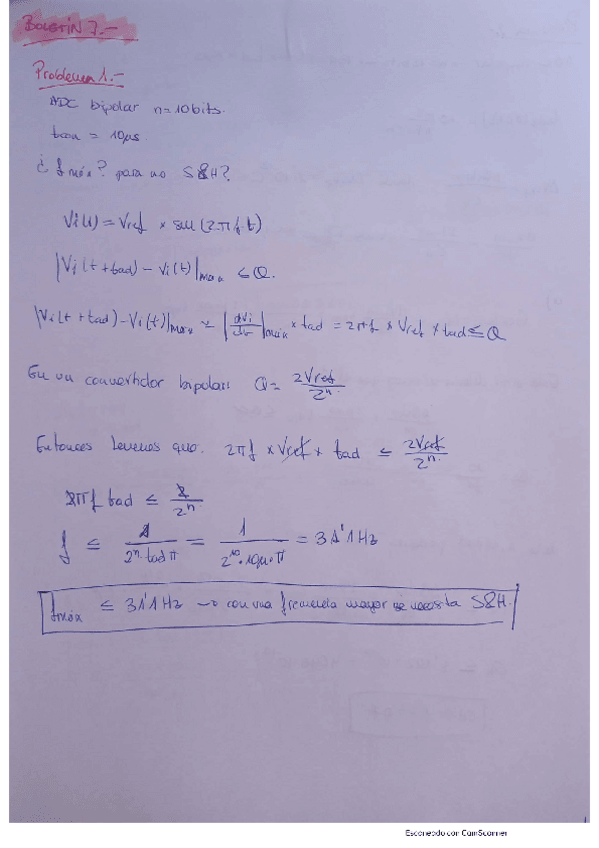 BOLETÍN 7.-
Problema 1.-
ADC bipolar n=10bits.
tcon = 10µs
¿ fmáx? para no S&H?
Vi(t) = Vref × sen (2πf·t)
|Vi(t + tad) - Vi(t)|max ≤ Q.
|Vi(t + tad) - Vi(t)|max ≃ |dVi/dt|máx × tad = 2πf × Vref × tad ≤ Q
En un convertidor bipolar: Q = 2Vref/2ⁿ
Entonces tenemos que. 2πf × Vref × tad ≤ 2Vref/2ⁿ
2πf tad ≤ 2/2ⁿ
f ≤ 1/2ⁿ·tad π = 1/2¹⁰·10µ·π = 31'1Hz
fmáx ≤ 31'1Hz → con una frecuencia mayor se necesita S&H.
Escaneado con CamScanner